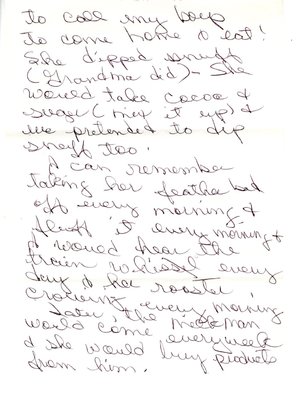 to call my boys
to come home & eat!
She dipped snuff
(Grandma did) - She
would take cocoa &
sugar (mix it up) &
we pretended to dip
snuff too.
I can remember
taking her feather bed
off every morning &
fluff it every morning &
I would hear the
train whissel every
day & her rooster
crowing every morning
Later, the milkman
would come everyweek
& she would buy products
from him.